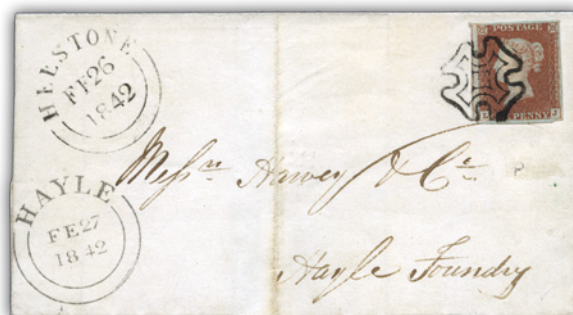 HELSTONE
FE26
1842
POSTAGE
PENNY
J
HAYLE
FE27
1842
Messrs Harvey & Co
Hayle Foundry